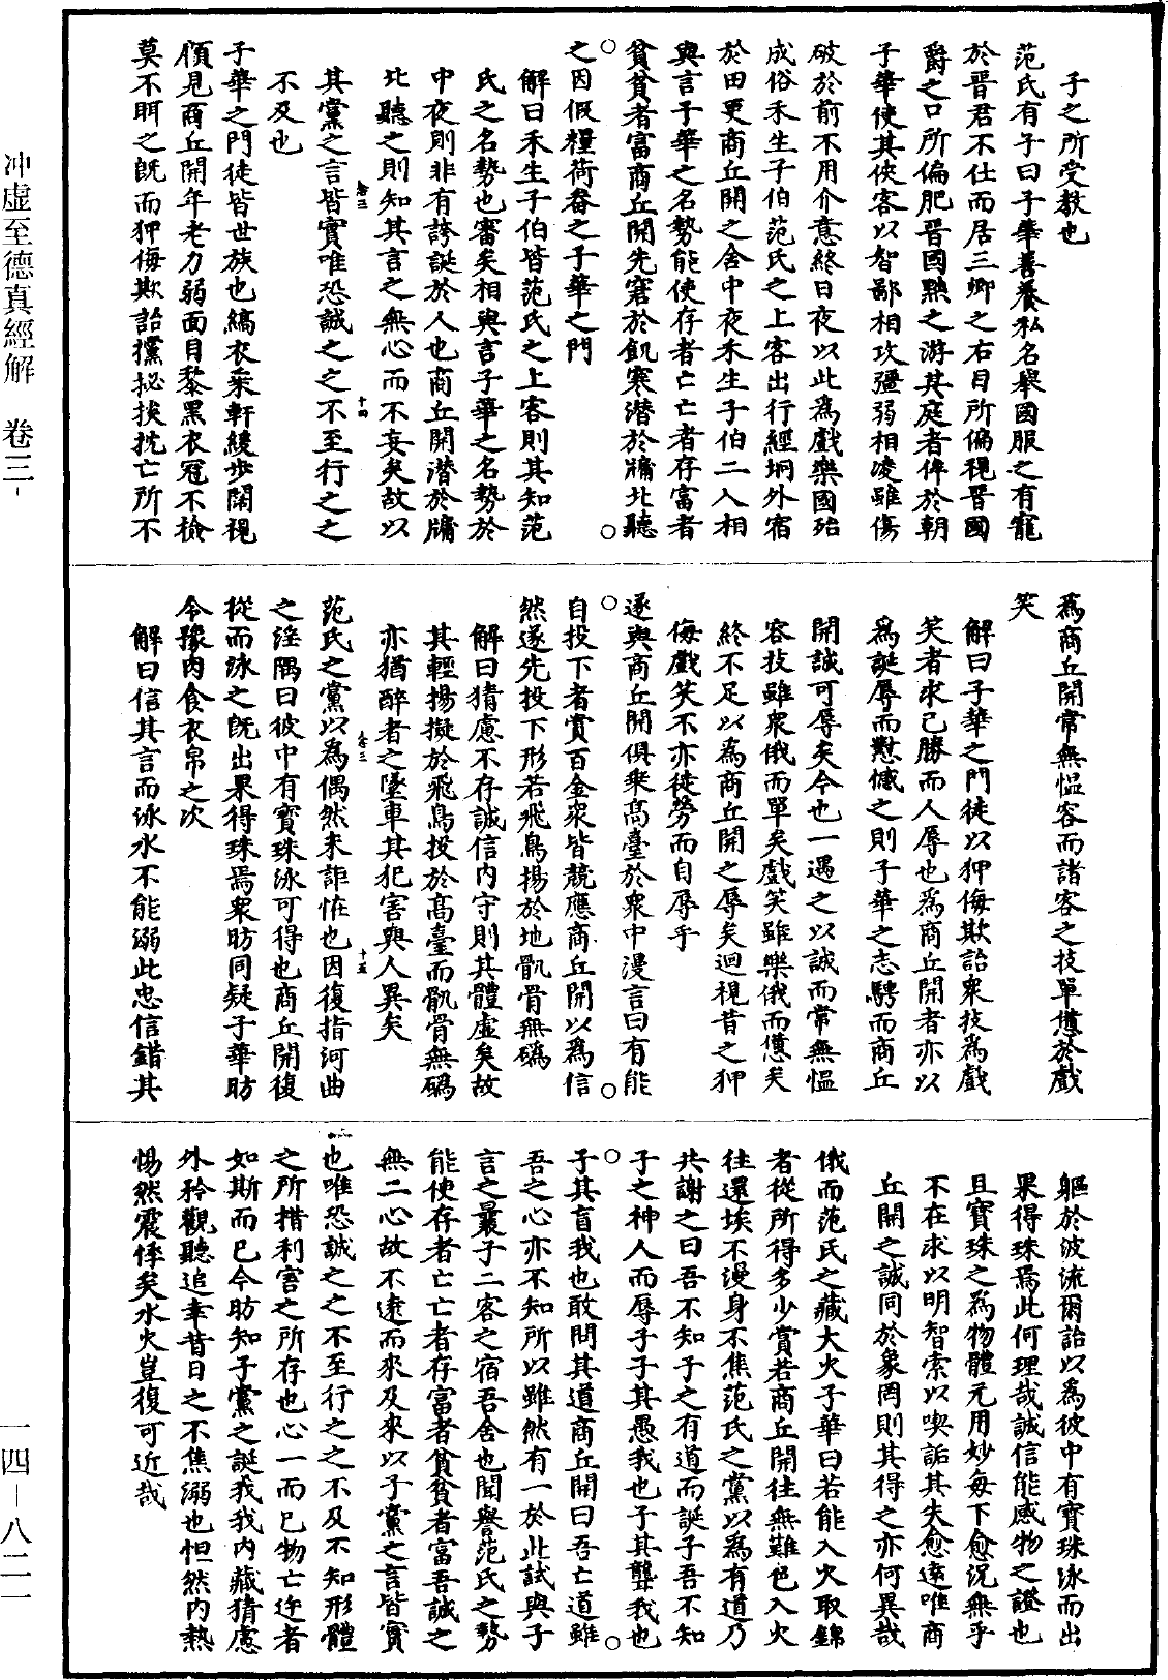 子之所受教也
范氏有子曰子華善養私名舉國服之有寵
於晉君不仕而居三卿之右目所偏視晉國
爵之口所偏肥晉國黜之游其庭者侔於朝
子華使其俠客以智鄙相攻彊弱相凌雖傷
破於前不用介意終日夜以此為戲樂國殆
成俗禾生子伯范氏之上客出行經坰外宿
於田更商丘開之舍中夜禾生子伯二人相
與言子華之名勢能使存者亡亡者存富者
貧貧者富商丘開先窘於飢寒潛於牖北聽
之因假糧荷畚之子華之門
解曰禾生子伯皆范氏之上客則其知范
氏之名勢也審矣相與言子華之名勢於
中夜則非有誇誕於人也商丘開潛於牖
北聽之則知其言之無心而不妄矣故以
其黨之言皆實唯恐誠之之不至行之之
不及也
子華之門徒皆世族也縞衣乘軒緩步闊視
顧見商丘開年老力弱面目黎黑衣冠不檢
莫不眲之既而狎侮欺詒攩㧙挨抌亡所不
為商丘開常無慍容而諸客之技單憊於戲
笑
解曰子華之門徒以狎侮欺詒衆技為戲
笑者求己勝而人辱也為商丘開者亦以
為誕辱而懟憾之則子華之志騁而商丘
開誠可辱矣今也一遇之以誠而常無慍
容技雖衆俄而單矣戲笑雖樂俄而憊矣
終不足以為商丘開之辱矣迴視昔之狎
侮戲笑不亦徒勞而自辱乎
遂與商丘開俱乘高臺於衆中漫言曰有能
自投下者賞百金衆皆競應商丘開以為信
然遂先投下形若飛鳥揚於地骩骨無碼
解曰猜慮不存誠信內守則其體虛矣故
其輕揚擬於飛鳥投於高臺而骩骨無碼
亦猶醉者之墜車其犯害與人異矣
范氏之黨以為偶然未詎怪也因復指河曲
之淫隅曰彼中有寶珠泳可得也商丘開復
從而泳之既出果得珠焉衆昉同疑子華昉
令豫肉食衣帛之次
解曰信其言而泳水不能溺此忠信錯其
軀於波流爾詒以為彼中有寶珠泳而出
果得珠焉此何理哉誠信能感物之證也
且寶珠之為物體元用妙每下愈況無乎
不在求以明智索以喫詬其失愈遠唯商
丘開之誠同於象罔則其得之亦何異哉
俄而范氏之藏大火子華曰若能入火取錦
者從所得多少賞若商丘開往無難色入火
往還埃不漫身不焦范氏之黨以為有道乃
共謝之曰吾不知子之有道而誕子吾不知
子之神人而辱子子其愚我也子其聾我也
子其盲我也敢問其道商丘開曰吾亡道雖
吾之心亦不知所以雖然有一於此試與子
言之曩子二客之宿吾舍也聞譽范氏之勢
能使存者亡亡者存富者貧貧者富吾誠之
無二心故不遠而來及來以子黨之言皆實
也唯恐誠之之不至行之之不及不知形體
之所措利害之所存也心一而已物亡迕者
如斯而已今昉知子黨之誕我我內藏猜慮
外矜觀聽追幸昔日之不焦溺也怛然內熱
惕然震悸矣水火豈復可近哉
冲虛至德真經解　卷三
一四—八二一